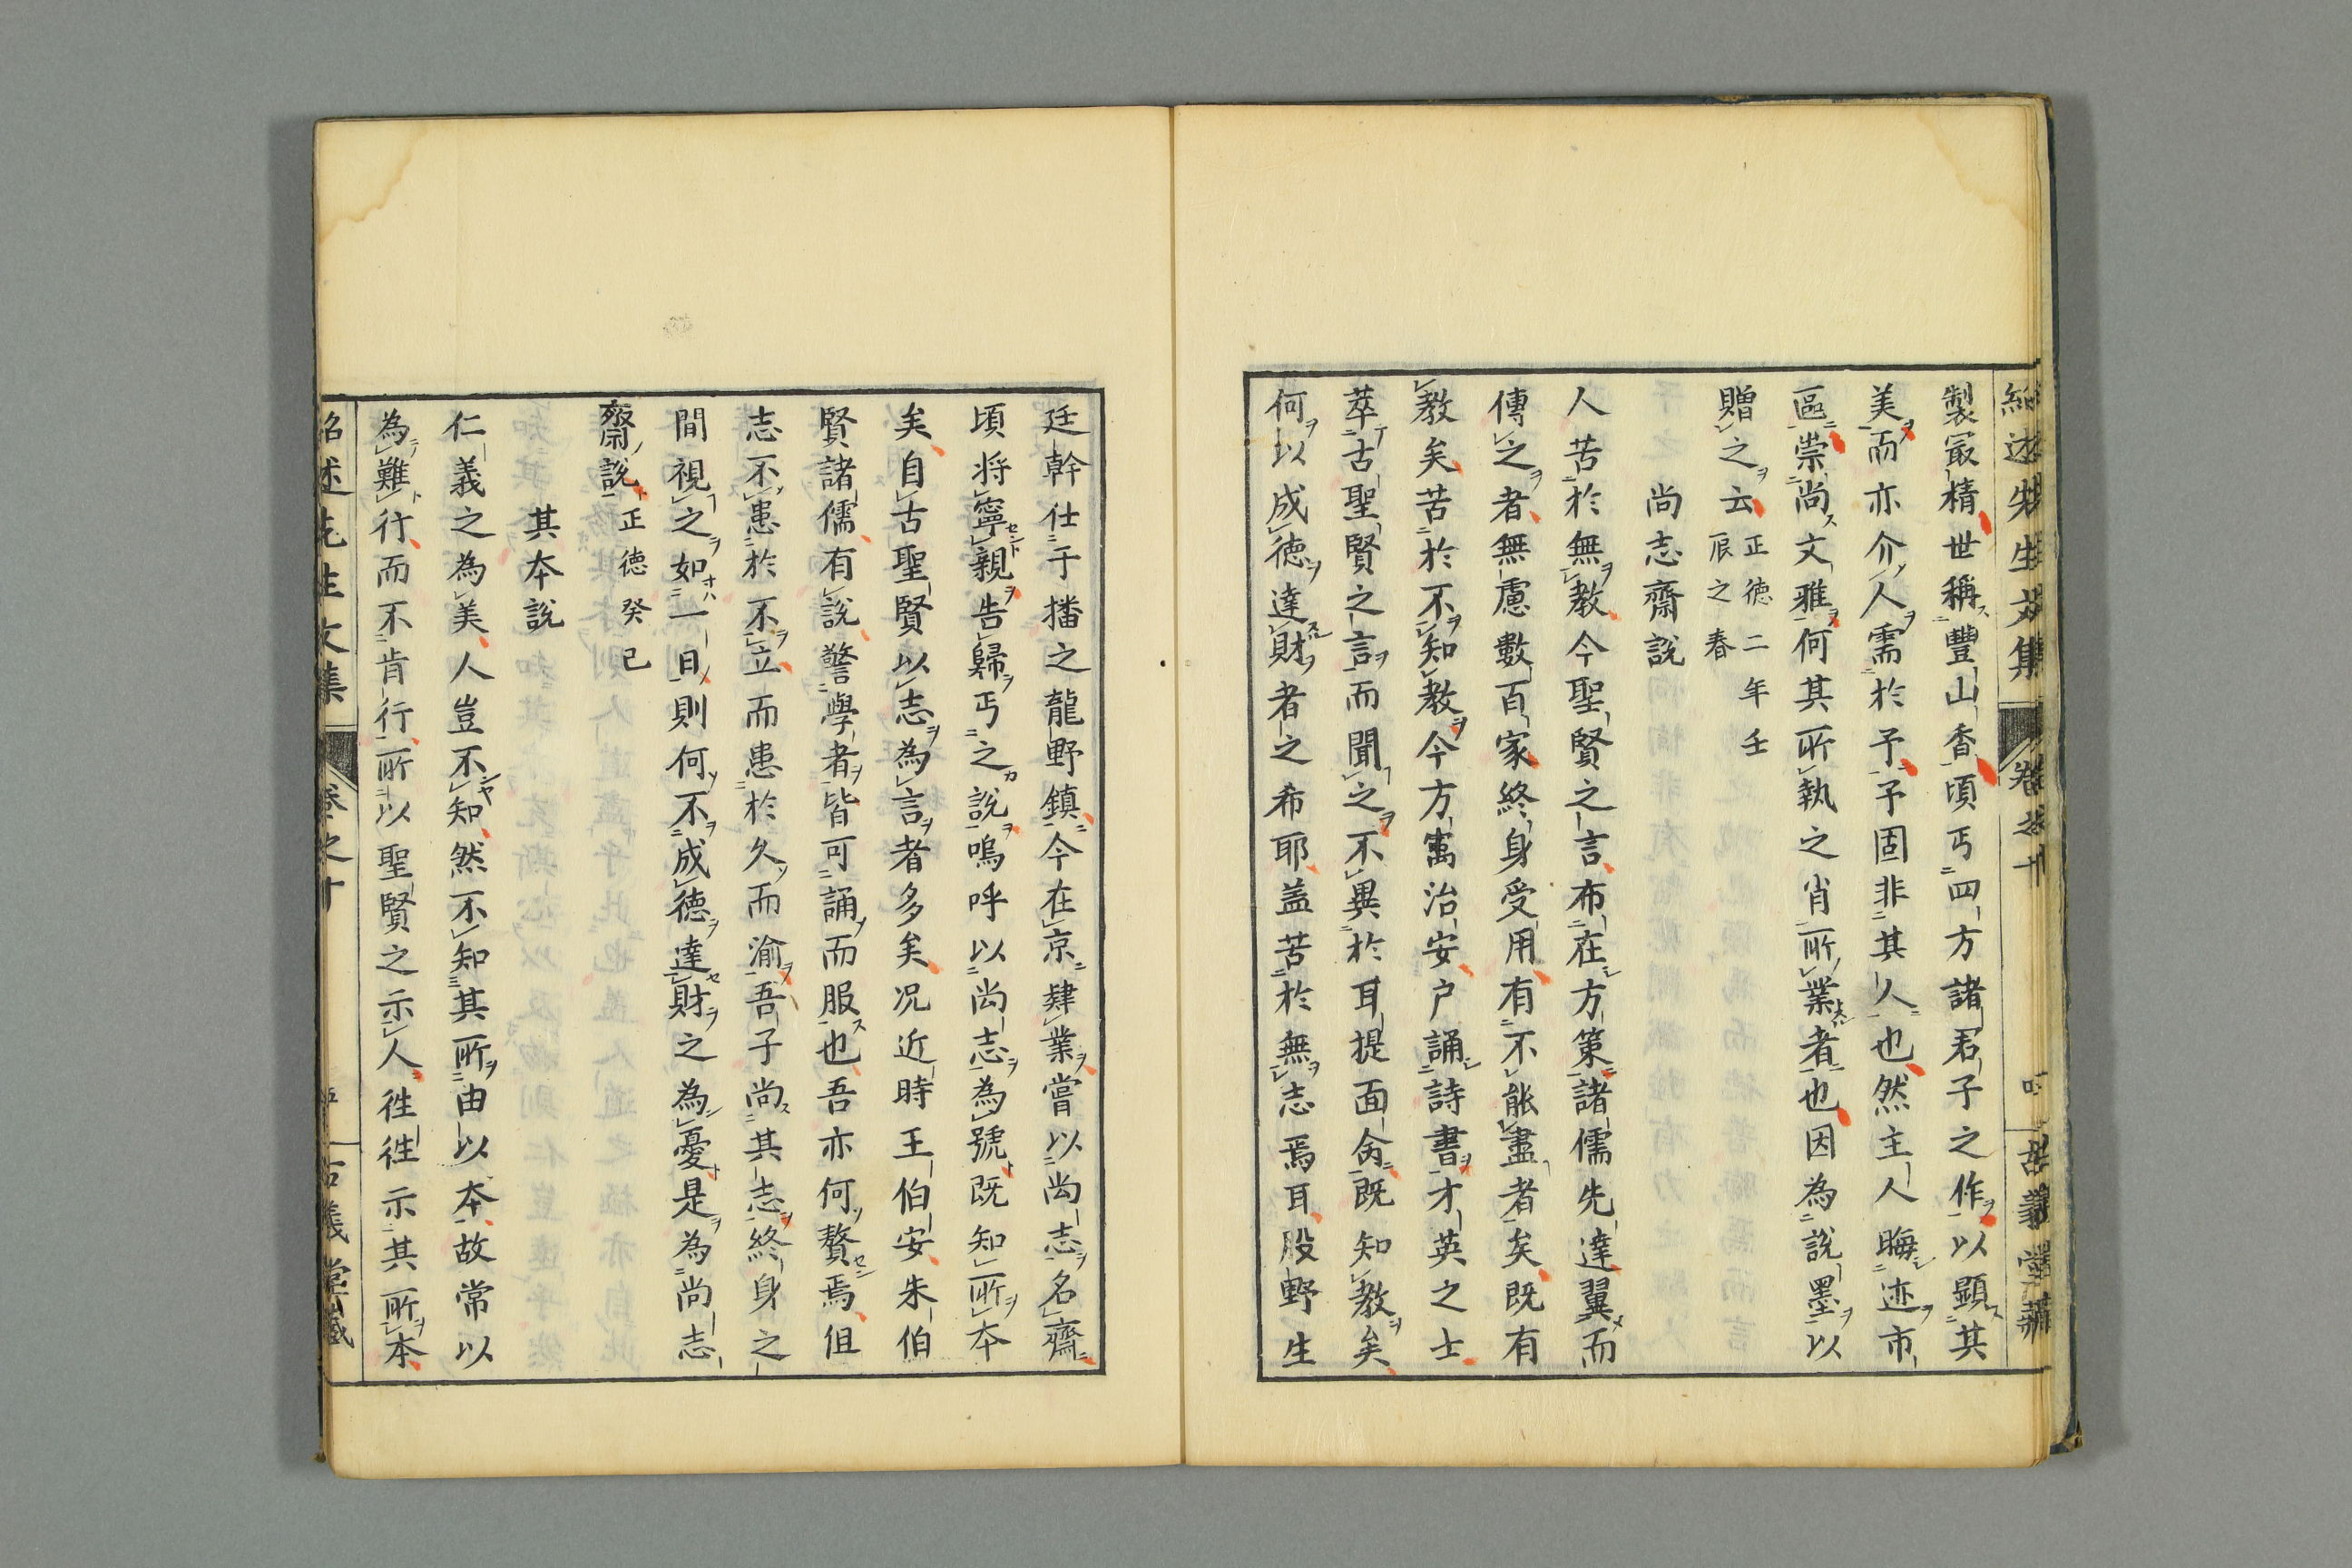 製冣精世稱豐山香頃丐四方諸君子之作以顯其
美而亦介人需於予予固非其人也然主人晦迹市
區崇尚文雅何其所執之肖所業者也因為說墨以
贈之云正德二年壬
辰之春
尚志齋說
人苦於無教今聖賢之言布在方策諸儒先達翼而
傳之者無慮數百家終身受用有不能盡者矣既有
教矣苦於不知教今方寓治安戶誦詩書才英之士
萃古聖賢之言而聞之不異於耳提面命既知教矣
何以成徳達財者之希耶盖苦於無志焉耳股野生
廷幹仕于播之龍野鎮今在京肄業嘗以尚志名齋
頃将寧親告歸丐之說嗚呼以尚志為號既知所本
矣自古聖賢以志為言者多矣况近時王伯安朱伯
賢諸儒有說警學者皆可誦而服也吾亦何贅焉但
志不患於不立而患於久而渝吾子尚其志終身之
間視之如一日則何不成徳達財之為憂是為尚志
齋說正德癸巳
其本說
仁義之為美人豈不知然不知其所由以本故常以
為難行而不肯行所以聖賢之示人徃徃示其所本
紹述先生文集 卷之十 古義堂藏